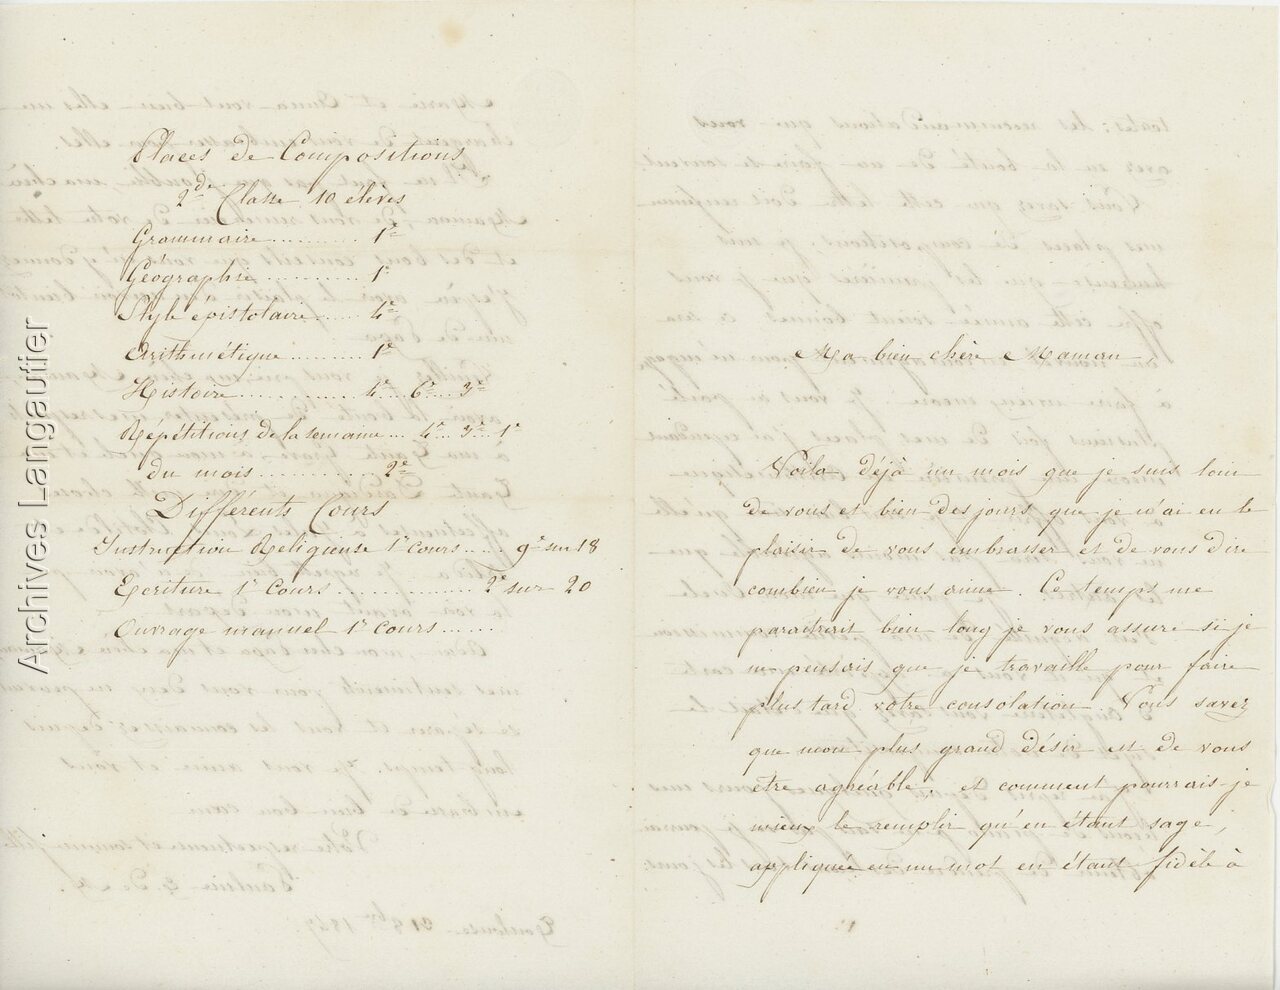 Places de Compositions
2de Classe 10 elèves
Grammaire .......... 1e
Géographie .......... 1e
Style épistolaire ..... 4e
Arithmétique .......... 1e
Histoire ............ 4e... 6e... 3e
Répétitions de la semaine ... 4e... 3e... 1e
du mois ............ 2e
Différents Cours
Instruction Religieuse 1r cours ..... 9e sur 18
Ecriture 1r cours .............. 2e sur 20
Ouvrage manuel 1r cours ......
Ma bien chère Maman,
Voila déjà un mois que je suis loin
de vous et bien des jours que je n'ai eu le
plaisir de vous embrasser et de vous dire
combien je vous aime. Ce temps me
paraitrait bien long je vous assure si je
ne pensais que je travaille pour faire
plus tard votre consolation. Vous savez
que mon plus grand désir est de vous
etre agréable, et comment pourrais-je
mieux le remplir qu'en étant sage,
appliquée en un mot en étant fidèle à
Archives Langautier